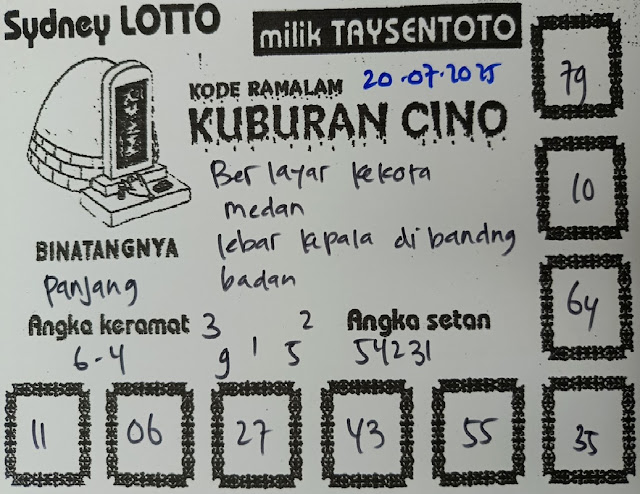 Sydney LOTTO
milik TAYSENTOTO
79
KODE RAMALAM 20-07-2025
KUBURAN CINO
Ber layar kekota
medan
lebar kepala di bandng
badan
10
BINATANGNYA
Panjang
64
Angka keramat
6-4
3 2
9 1 5
Angka setan
54231
11 06 27 43 55 35